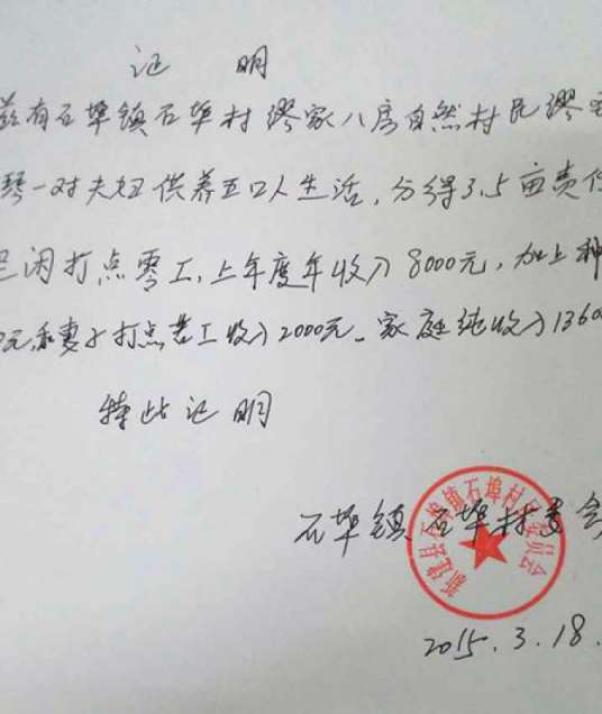 证 明
兹有石埠镇石埠村缪家八房自然村民缪
琴一对夫妇供养五口人生活，分得3.5亩责任
闲打点零工，上年度年收入8000元，加上种
元，和妻子打点苦工收入2000元。家庭纯收入1360
特此证明
石埠镇石埠村委会
新建县石埠镇石埠村民委员会
2015.3.18.